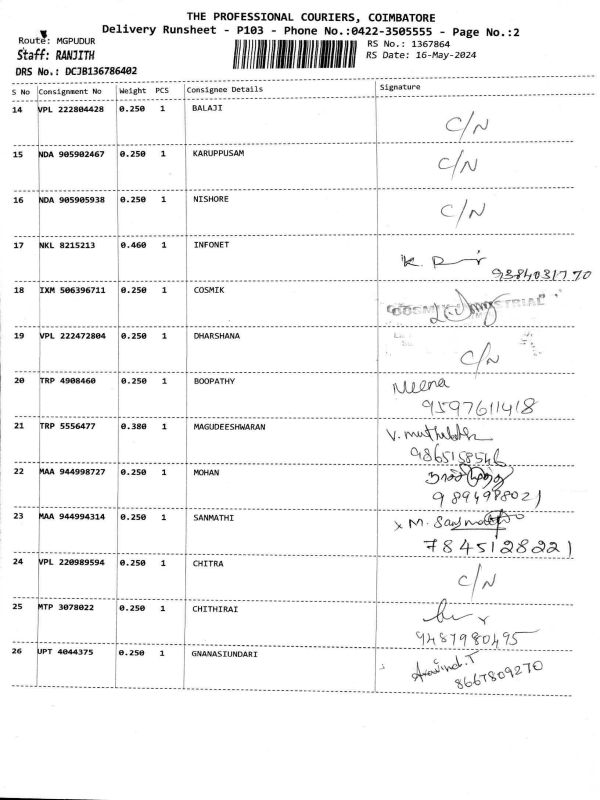 THE PROFESSIONAL COURIERS, COIMBATORE
Delivery Runsheet - P103 - Phone No.:0422-3505555 - Page No.:2
Route: MGPUDUR
RS No.: 1367864
Staff: RANJITH
RS Date: 16-May-2024
DRS No.: DCJB136786402
S No Consignment No Weight PCS Consignee Details Signature
14 VPL 222804428 0.250 1 BALAJI C/N
15 NDA 905902467 0.250 1 KARUPPUSAM C/N
16 NDA 905905938 0.250 1 NISHORE C/N
17 NKL 8215213 0.460 1 INFONET K.
9384031770
18 IXM 506396711 0.250 1 COSMIK
19 VPL 222472804 0.250 1 DHARSHANA C/N
20 TRP 4908460 0.250 1 BOOPATHY Meena
9597611418
21 TRP 5556477 0.380 1 MAGUDEESHWARAN
9865158546
22 MAA 944998727 0.250 1 MOHAN
23 MAA 944994314 0.250 1 SANMATHI x M.
7845128221
24 VPL 220989594 0.250 1 CHITRA C/N
25 MTP 3078022 0.250 1 CHITHIRAI
9487980495
26 UPT 4044375 0.250 1 GNANASIUNDARI Aravind.T
8667809270